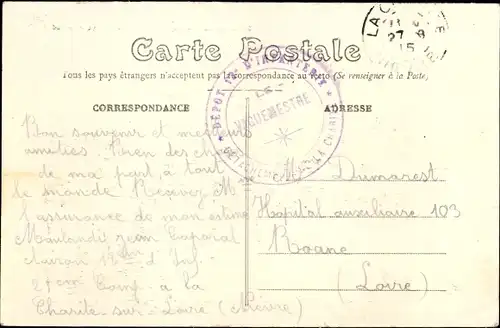 Carte Postale
Tous les pays étrangers n'acceptent pas la correspondance au recto (Se renseigner à la Poste)
CORRESPONDANCE
ADRESSE
LA C
27 8
15
DÉPOT D'INFANTERIE
LE
VAGUEMESTRE
DÉTACHEMENT LA CHARITÉ
Bon souvenir et meilleurs
amitiés. Bien des choses
de ma part à tout
le monde Recevez M
l'assurance de mon estime
Jean Caporal
clairon d Inf
27em Comp à la
Charité-sur-Loire (Nièvre)
M. Dumarest
Hopital auxiliaire 103
Roane
(Loire)